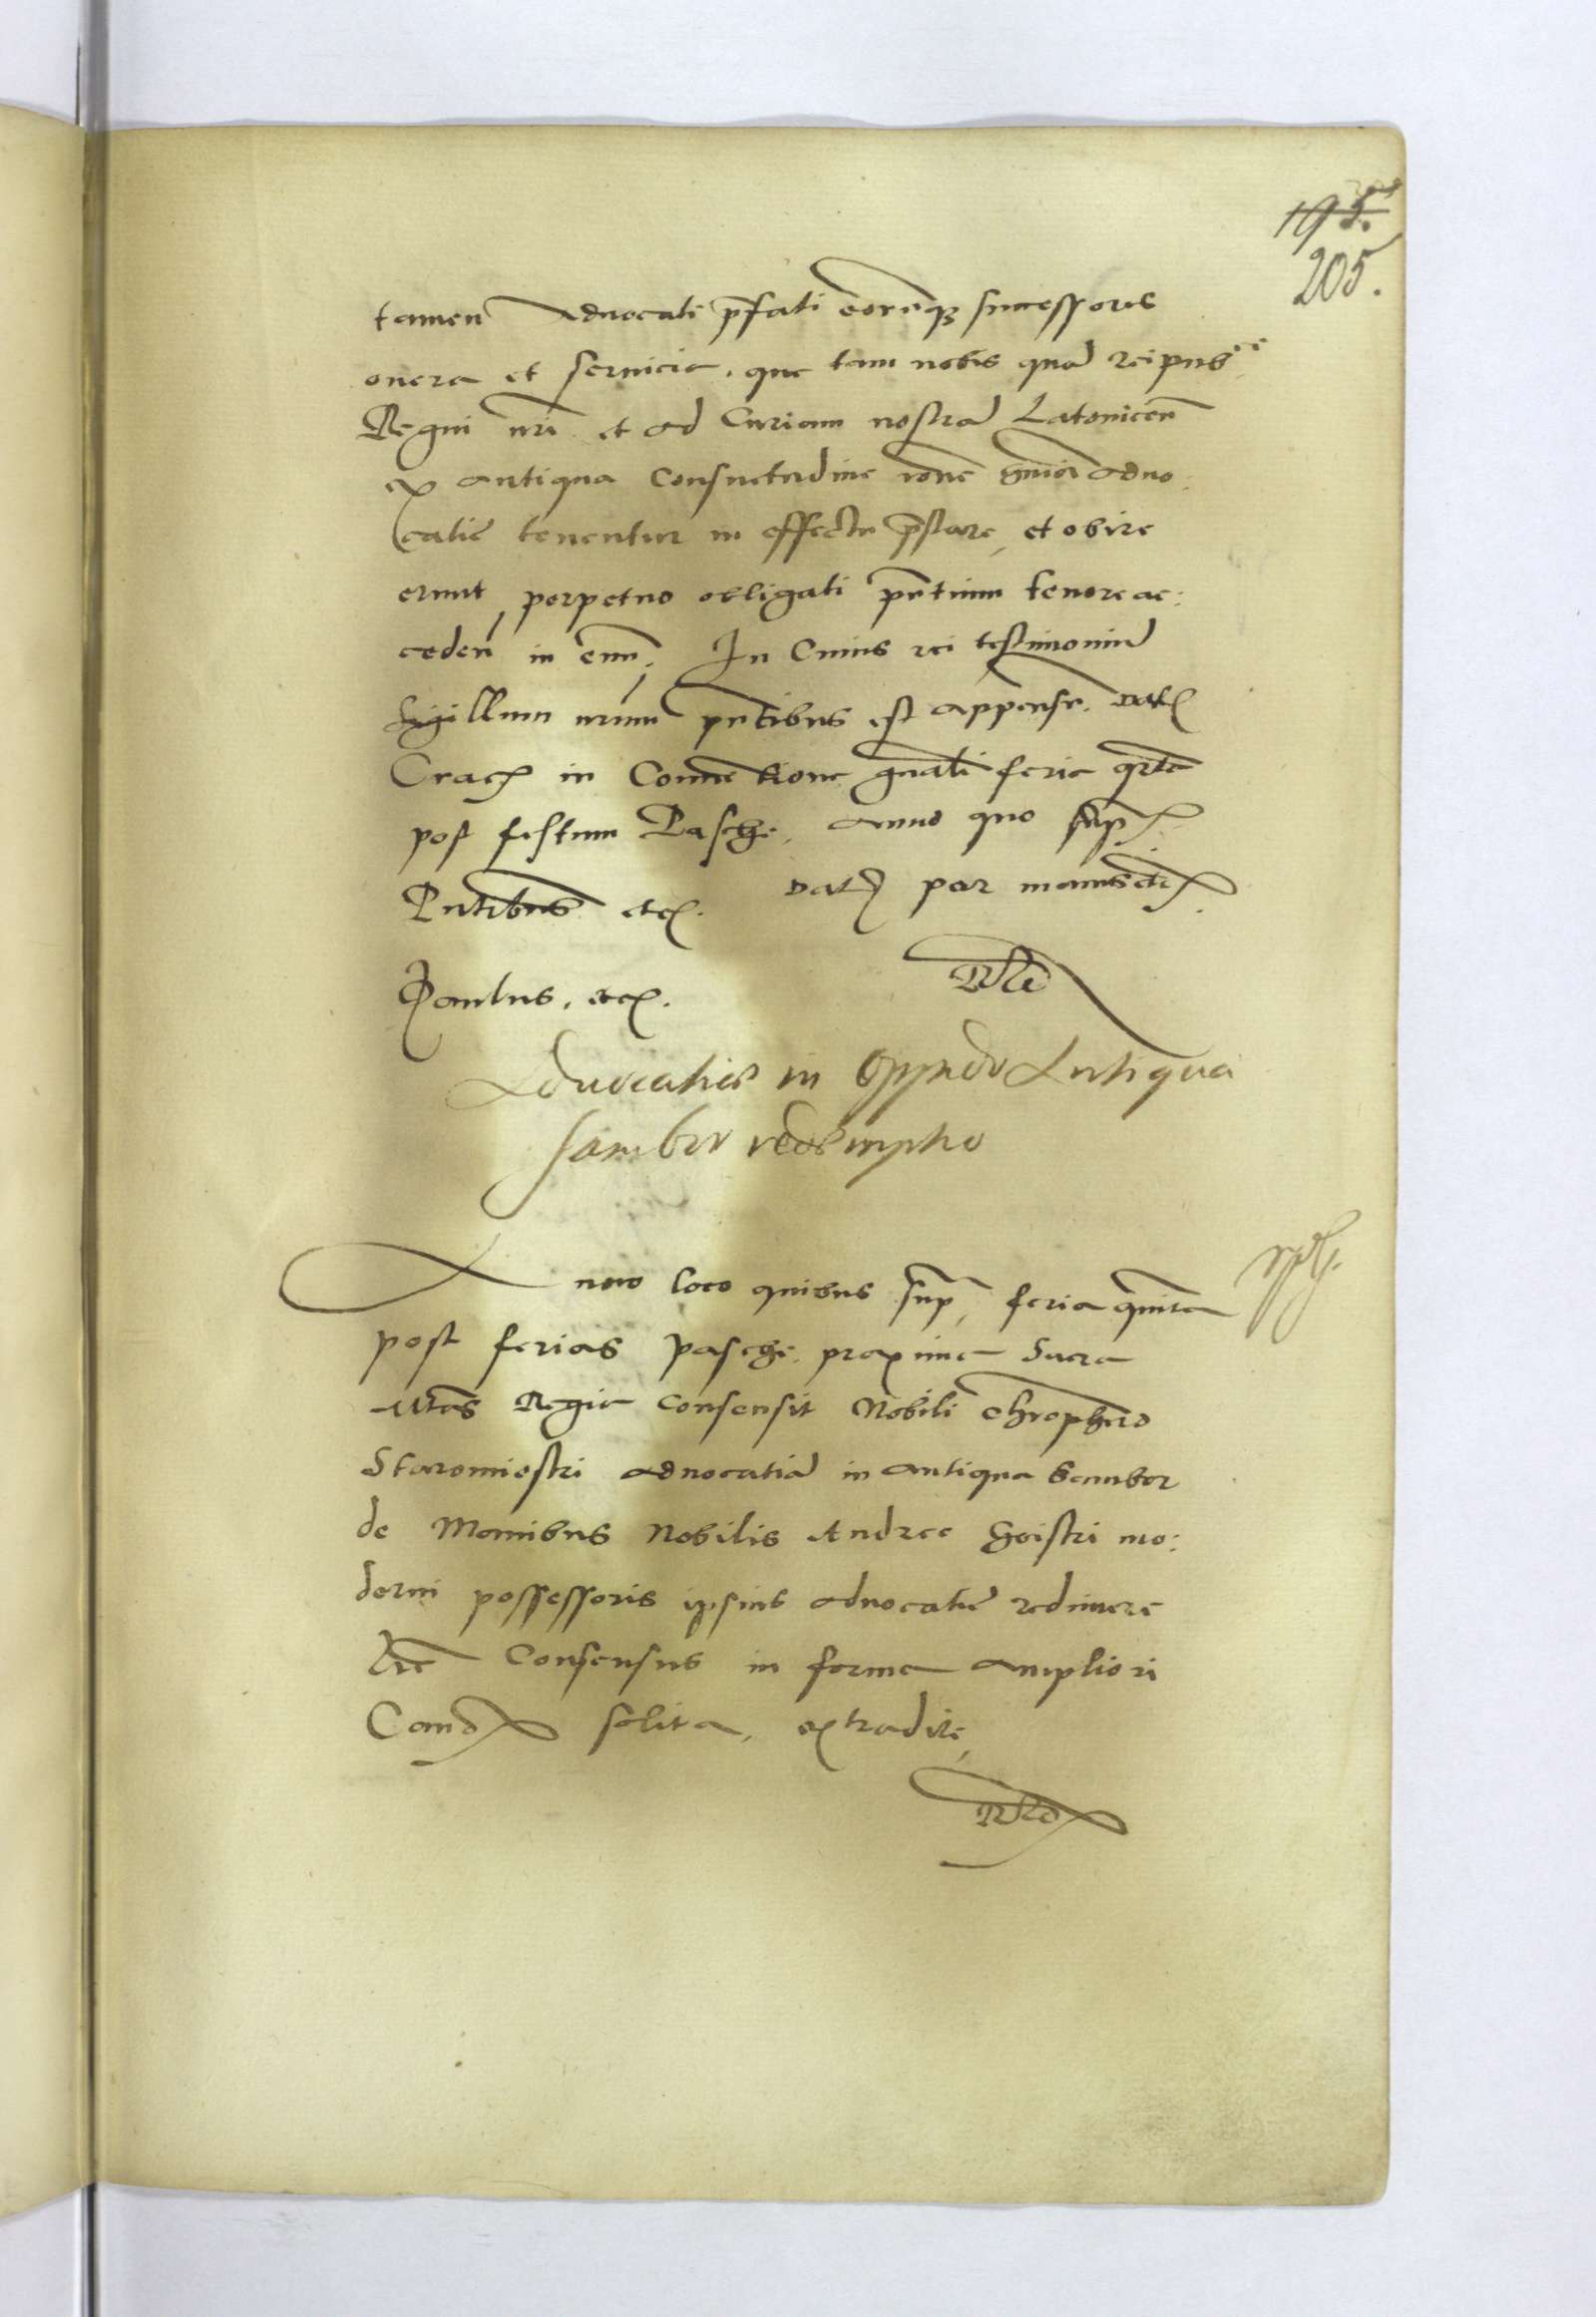 195.
205.
tamen Advocati p̄fati eorūq3 successores
onera et servicia, que tam nobis quā reipub^ce
Regni nr̄i et ad Curiam nostrā Latovicen̄
ex antiqua Consuetudine rōne hm̄oi advo:
catie tenentur in effectu p̄stare, et obire
erunt, perpetuo obligati pn̄tium tenore ac:
ceden̄ in eum, In Cuius rei testimoniū
Sigillum nr̄um pn̄tibus est appensu. Dat
Crac in Conventione gn̄ali feria qrta
post festum Pasche, Anno quo sup
Pn̄tibus etc. Dat per manus etc
Paulus, etc. Rlō
Advocatiæ in Oppido Antiqua
Sambor redemptio
Anno loco quibus sup, feria quinta
post ferias pasche, proxima Sacra
Mtas Regia consensit Nobili Chrophero
Staromieski advocatiā in antiqua Sambor
de Manibus Nobilis Andree mo:
derni possessoris ipsius advocatie redimere
Lrē Consensus in forma ampliori
Canc solita, extradite,
Rlō